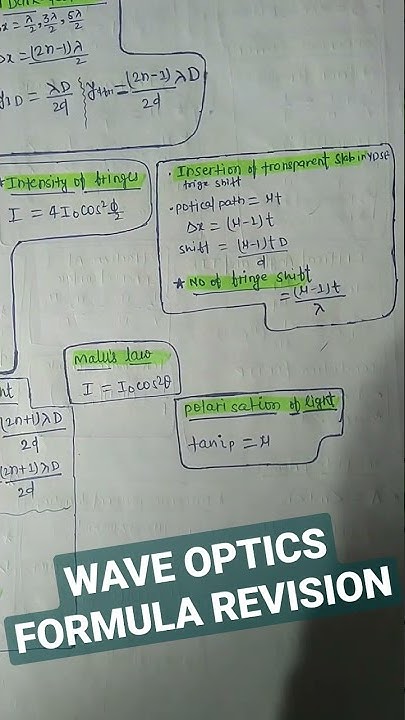 x = λ/2, 3λ/2, 5λ/2
Δx = (2n-1)λ/2
y1D = λD/2d } ynth = (2n-1)λD/2d
* Intensity of fringes
I = 4I0cos²φ/2
• Insertion of transparent slab in YDSE
fringe shift
• potical path = μt
Δx = (μ-1)t
shift = (μ-1)tD/d
★ No of fringe shift
= (μ-1)t/λ
Malu's law
I = I0cos²θ
polarisation of light
tanip = μ
nt
(2n+1)λD/2d
(2n+1)λD/2d
WAVE OPTICS
FORMULA REVISION